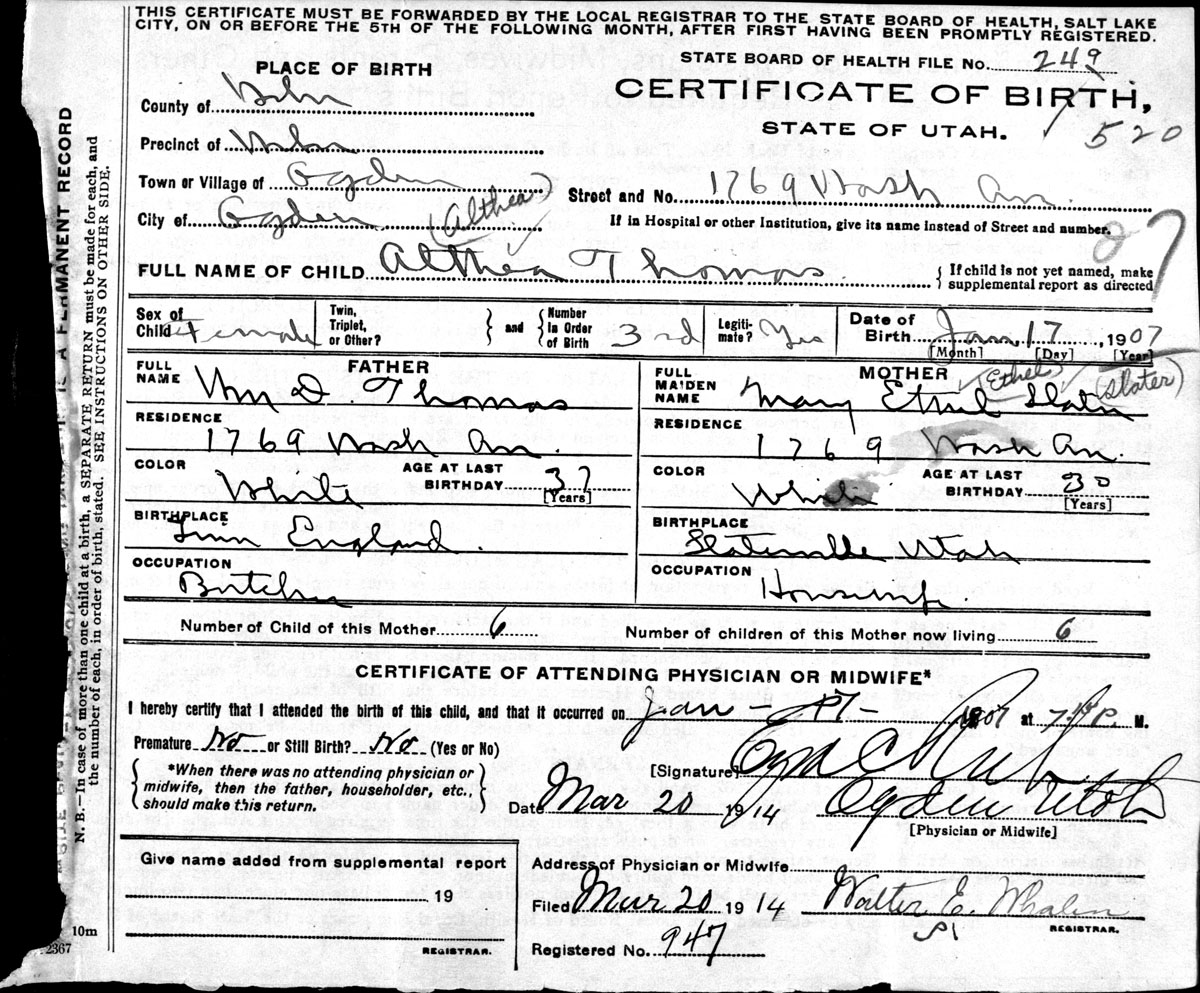 THIS CERTIFICATE MUST BE FORWARDED BY THE LOCAL REGISTRAR TO THE STATE BOARD OF HEALTH, SALT LAKE
CITY, ON OR BEFORE THE 5TH OF THE FOLLOWING MONTH, AFTER FIRST HAVING BEEN PROMPTLY REGISTERED.
STATE BOARD OF HEALTH FILE No. 249
PLACE OF BIRTH
CERTIFICATE OF BIRTH,
STATE OF UTAH.
520
County of Weber
Precinct of Weber
Town or Village of Ogden
Street and No. 1769 Wash Av.
City of Ogden (Althea)
If in Hospital or other Institution, give its name instead of Street and number.
87
FULL NAME OF CHILD Althea Thomas
{ If child is not yet named, make
supplemental report as directed
Sex of Child Female
Twin, Triplet, or Other? } and { Number in Order of Birth 3rd
Legiti-mate? Yes
Date of Birth Jan. 17, 1907
[Month] [Day] [Year]
FATHER
FULL NAME Wm D. Thomas
RESIDENCE
1769 Wash Av.
COLOR White
AGE AT LAST BIRTHDAY 37
[Years]
BIRTHPLACE
England.
OCCUPATION
Butcher
MOTHER
FULL MAIDEN NAME Mary Ethel Slater (Ethel) (Slater)
RESIDENCE
1769 Wash Av.
COLOR White
AGE AT LAST BIRTHDAY 30
[Years]
BIRTHPLACE
Slaterville Utah
OCCUPATION
Housewife.
Number of Child of this Mother 6
Number of children of this Mother now living 6
CERTIFICATE OF ATTENDING PHYSICIAN OR MIDWIFE*
I hereby certify that I attended the birth of this child, and that it occurred on Jan - 17 - 1907 at P. M.
Premature No or Still Birth? No (Yes or No)
{ *When there was no attending physician or
midwife, then the father, householder, etc.,
should make this return. }
[Signature]
Date Mar 20 1914
Ogden Utah
[Physician or Midwife]
Give name added from supplemental report
19
REGISTRAR.
Address of Physician or Midwife
Filed Mar 20 1914
Walter E. Whalen
REGISTRAR.
Registered No. 947
10m
2367
IS A PERMANENT RECORD
N. B.—In case of more than one child at a birth, a SEPARATE RETURN must be made for each, and
the number of each, in order of birth, stated. SEE INSTRUCTIONS ON OTHER SIDE.